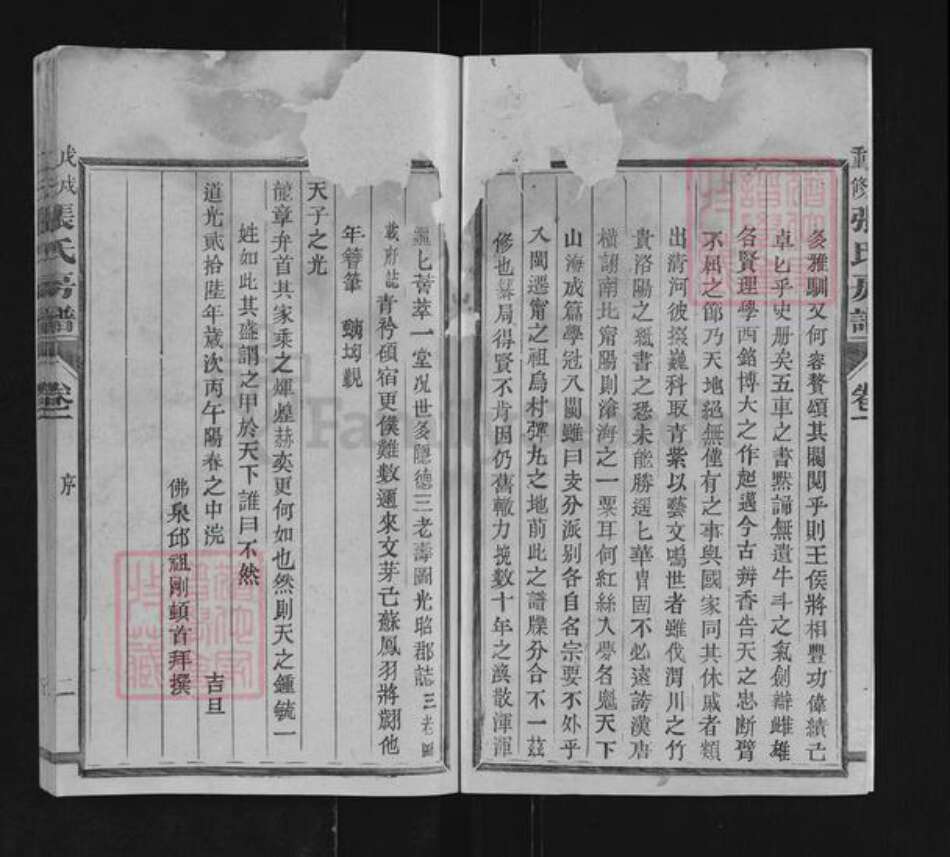 重修張氏房譜 卷一
多雅馴又何容贅頌其閥閱乎則王侯將相豐功偉績已
卓匕乎史册矣五車之書默諦無遺牛斗之氣劍辯雌雄
各賢理學西銘博大之作起邁今古辨香告天之忠斷臂
不屈之節乃天地絕無僅有之事與國家同其休戚者類
出清河彼掇巍科取青紫以藝文鳴世者雖伐渭川之竹
貴洛陽之紙書之恐未能勝遥匕華胄固不必遠誇漢唐
橫詡南北甯陽則滄海之一粟耳何紅絲入夢名魁天下
山海成篇學冠八閩雖曰支分派别各自名宗要不外乎
入閩遷甯之祖烏村彈丸之地前此之譜牒分合不一茲
修也纂局得賢不肯因仍舊轍力挽數十年之渙散渾渾
匕薈萃一堂况世多隱德三老壽圖光昭郡誌三老圖
載府誌青衿碩宿更僕難數邇來文芽已蘇鳳羽將翽他
年簪筆 螭坳覲
天子之光
龍章弁首其家乘之煇煌赫奕更何如也然則天之鍾毓一
姓如此其盛謂之甲於天下誰曰不然
道光貳拾陸年歲次丙午陽春之中浣 吉旦
佛泉邱祖剛頓首拜撰
戊戌 張氏房譜 卷一 序 二